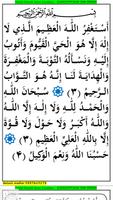 بِسْمِ اللهِ الرَّحْمٰنِ الرَّحِيْمِ
أَسْتَغْفِرُ اللهَ الْعَظِيْمَ الَّذِيْ لَا
إِلٰهَ إِلَّا هُوَ الْحَيُّ الْقَيُّوْمُ وَأَتُوْبُ
إِلَيْهِ وَنَسْأَلُهُ التَّوْبَةَ وَالْمَغْفِرَةَ
وَالْهِدَايَةَ لَنَا إِنَّهُ هُوَ التَّوَّابُ
الرَّحِيْمُ (٣) سُبْحَانَ اللهِ
وَالْحَمْدُ لِلّٰهِ وَلَا إِلٰهَ إِلَّا
اللهُ وَاللهُ أَكْبَرُ وَلَا حَوْلَ وَلَا قُوَّةَ
إِلَّا بِاللهِ الْعَلِيِّ الْعَظِيْمِ (٣)
حَسْبُنَا اللهُ وَنِعْمَ الْوَكِيْلُ (٤)